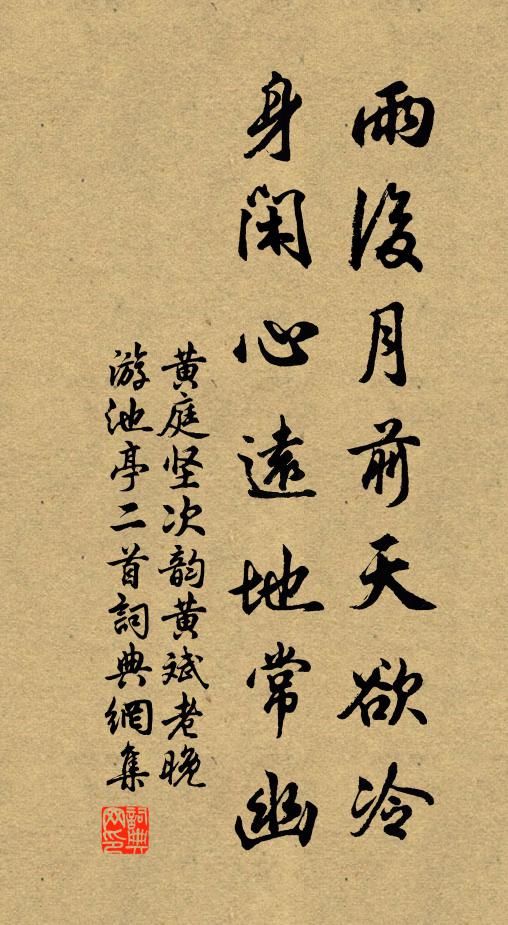 雨後月前天欲冷
身閑心遠地常幽
黄庭坚次韵黄斌老晚
游池亭二首詞典網集
詞典网印